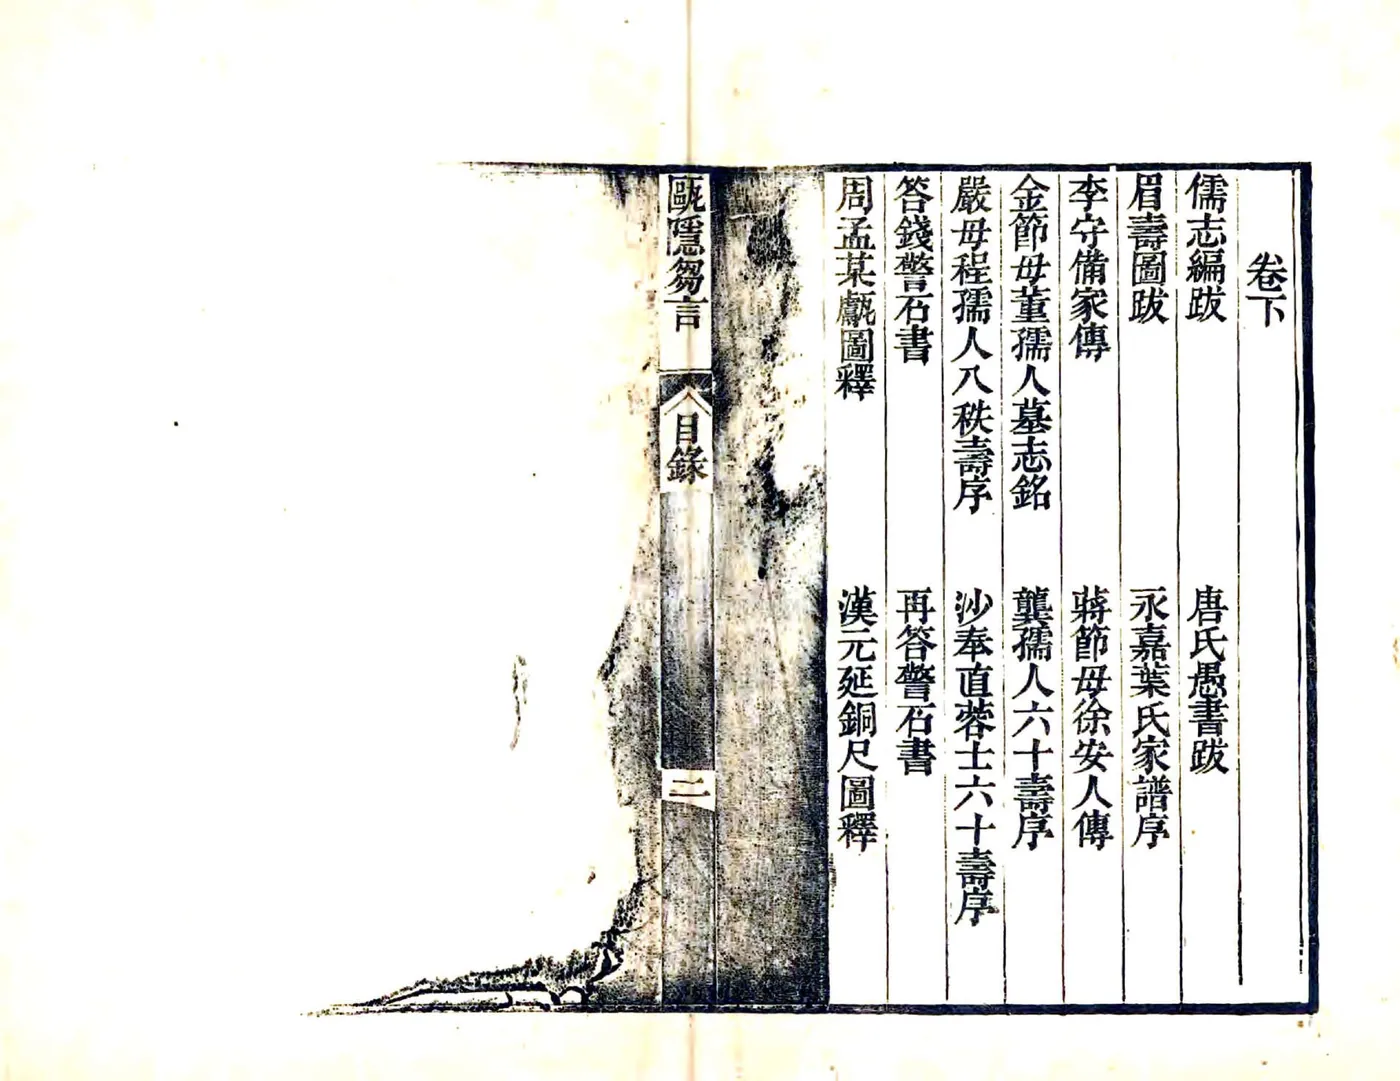 卷下
儒志編跋
唐氏愚書跋
眉壽圖跋
永嘉葉氏家譜序
李守備家傳
蔣節母徐安人傳
金節母董孺人墓志銘
龔孺人六十壽序
嚴母程孺人八秩壽序
沙奉直蓉士六十壽序
答錢警石書
再答警石書
周孟某甗圖釋
漢元延銅尺圖釋
甌隱芻言
目錄
二